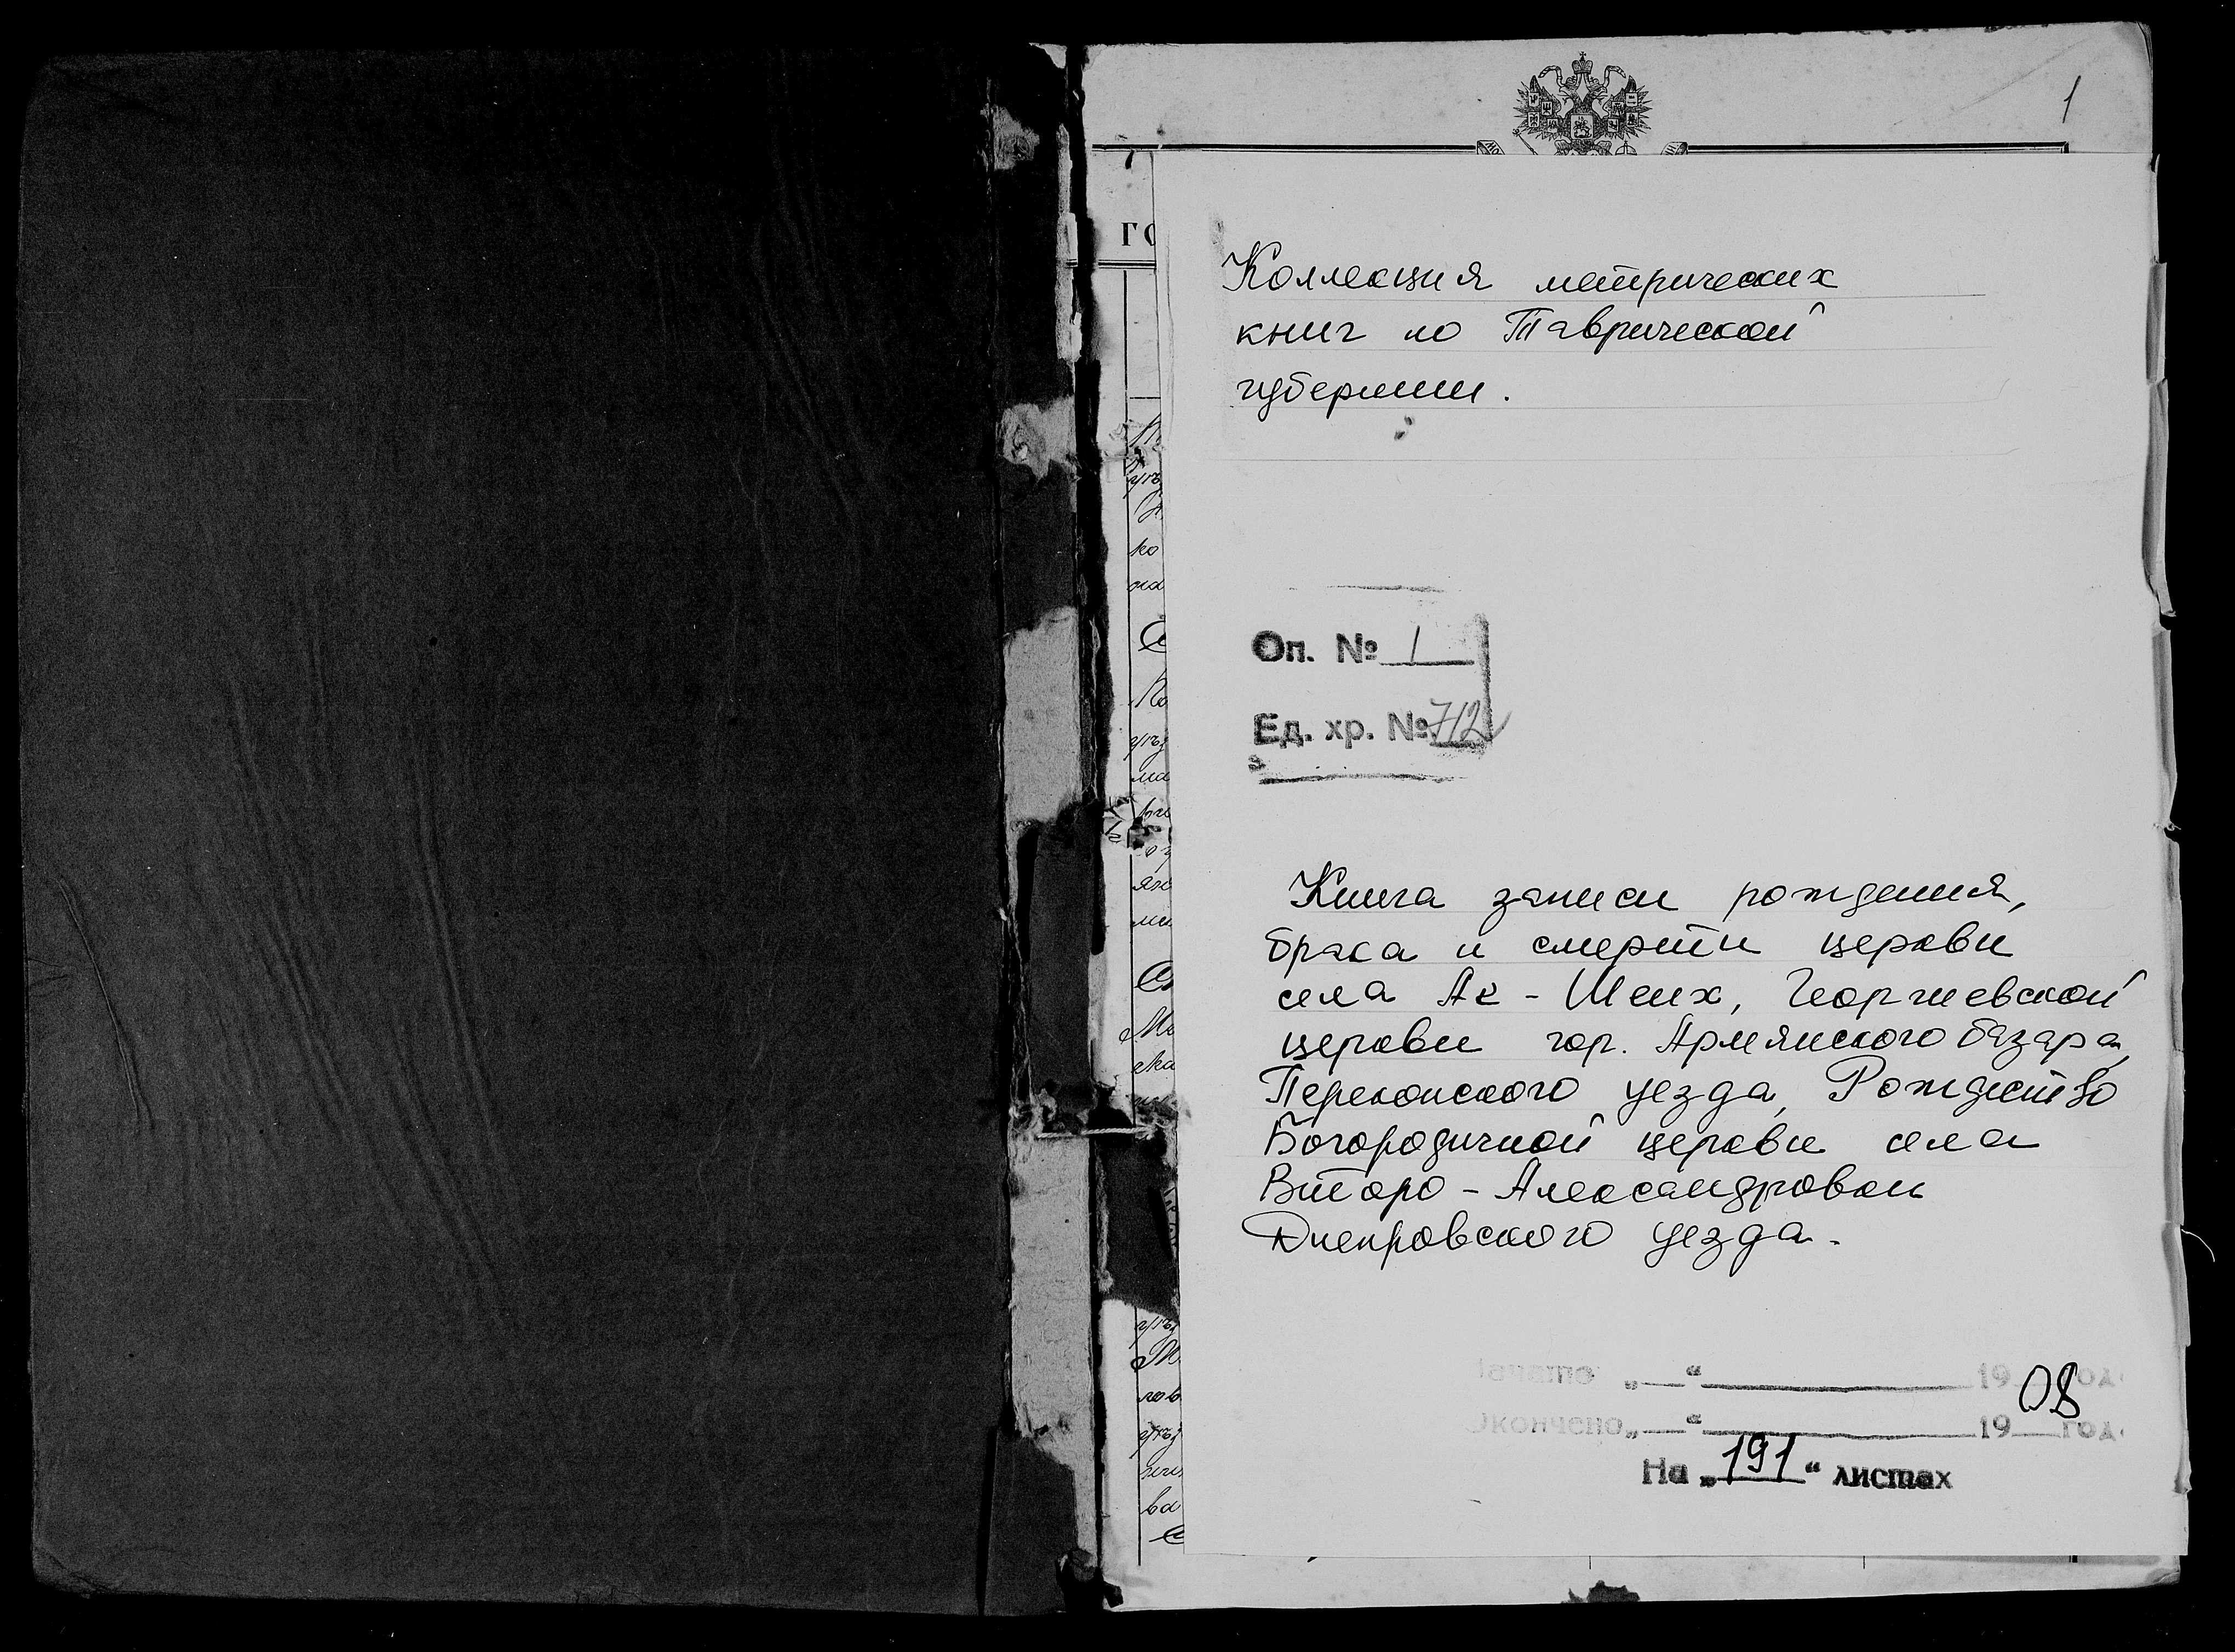 1
ГО
Коллекция метрических
книг по Таврической
губернии.
Оп. № 1
Ед. хр. № 712
Книга записи рождения,
брака и смерти церкви
села Ак - Шеих, Георгиевской
церкви гор. Армянского базара,
Перекопского уезда, Рождество
Богородичной церкви села
Второ - Александровки
Днепровского уезда.
Начато „ “ 19 год
08
Окончено „ “ 19 год
На „191“ листах